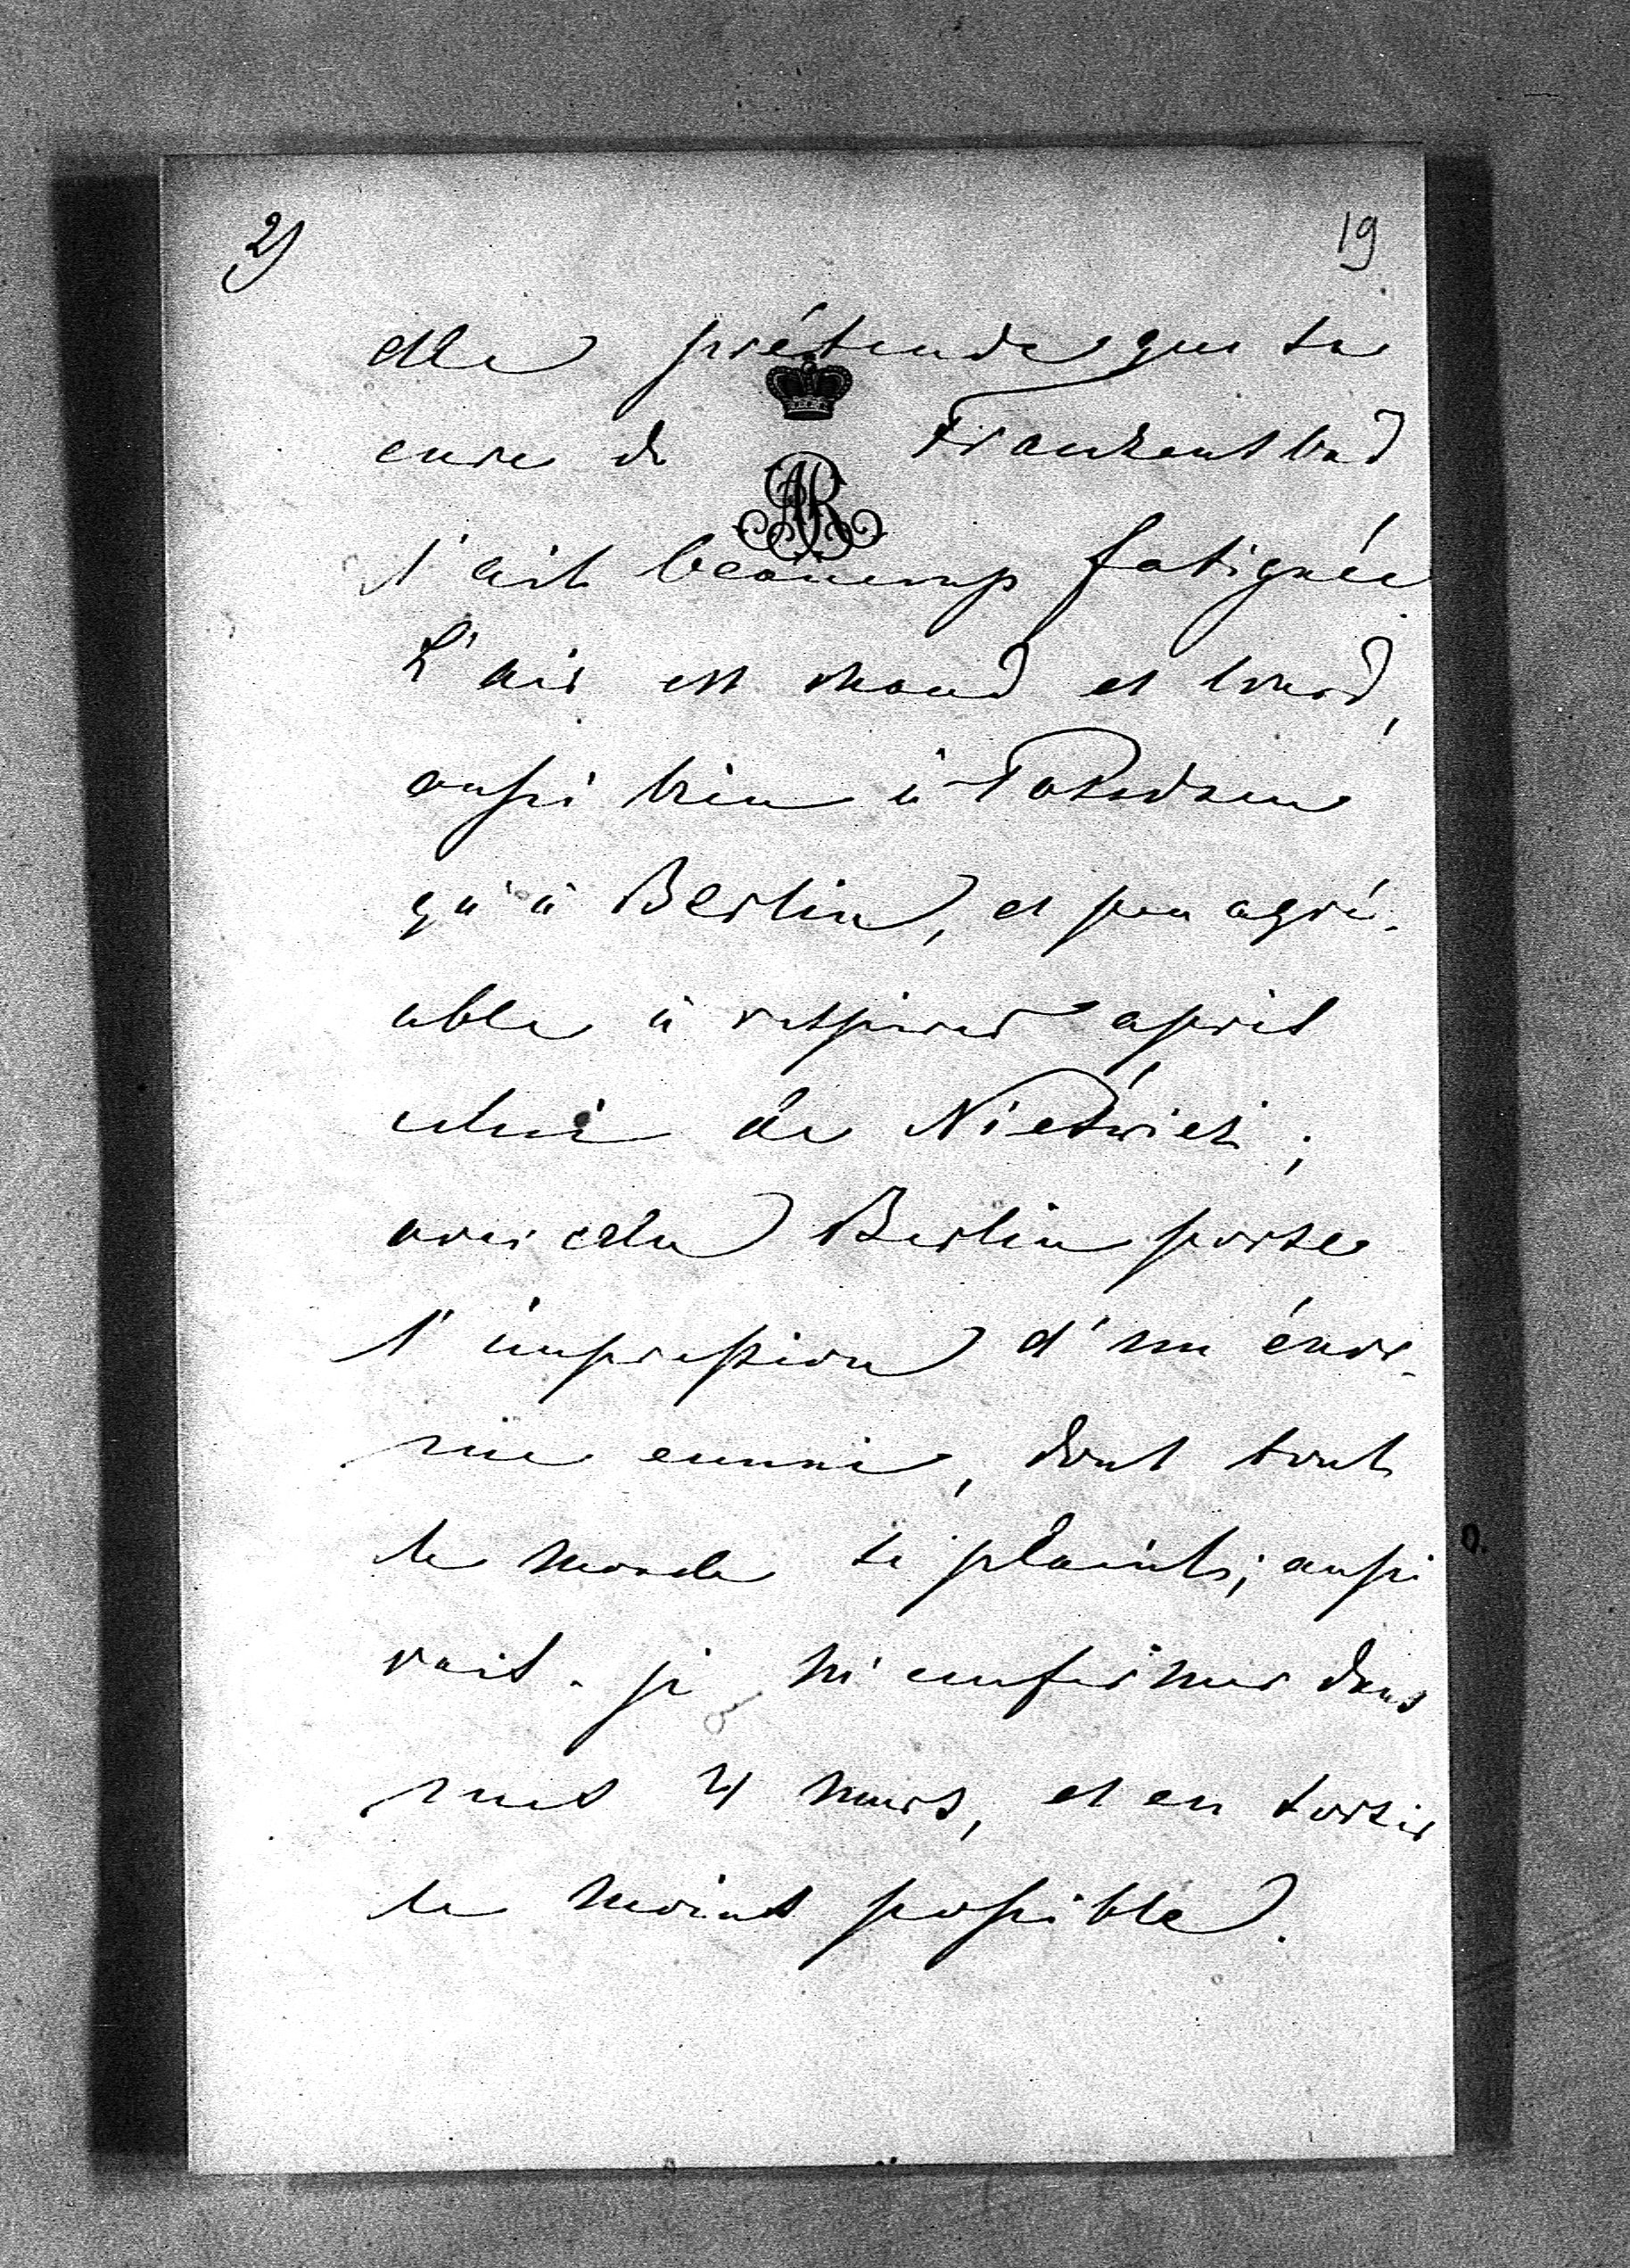 2) 19
elle prétende que sa
cure de Frankensbad
l'ait beaucoup fatiguée
L'air est chaud et lourd,
aussi bien à Potsdam
qu'à Berlin, et peu agré-
able à respirer après
celui de Nieświeź;
avec cela Berlin porte
l'impression d'un énor-
me ennui, dont tout
le monde se plaint; aussi
vais-je m'enfermer dans
mes 4 murs, et en sortir
le moins possible.